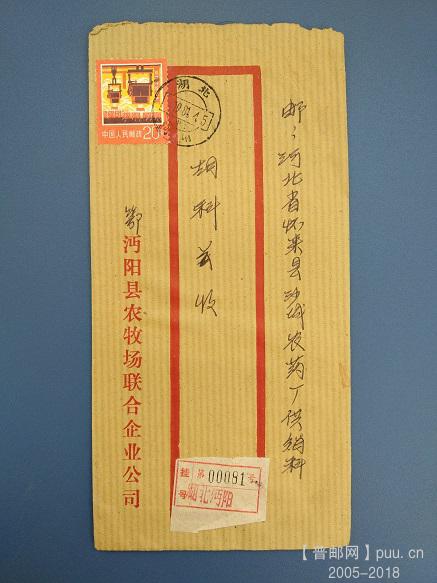 邮：河北省怀来县沙城农药厂供销科
胡科芸收
鄂沔阳县农牧场联合企业公司
中国人民邮政 20
湖北
挂号
第00081号
湖北沔阳
【普邮网】puu.cn
2005-2018